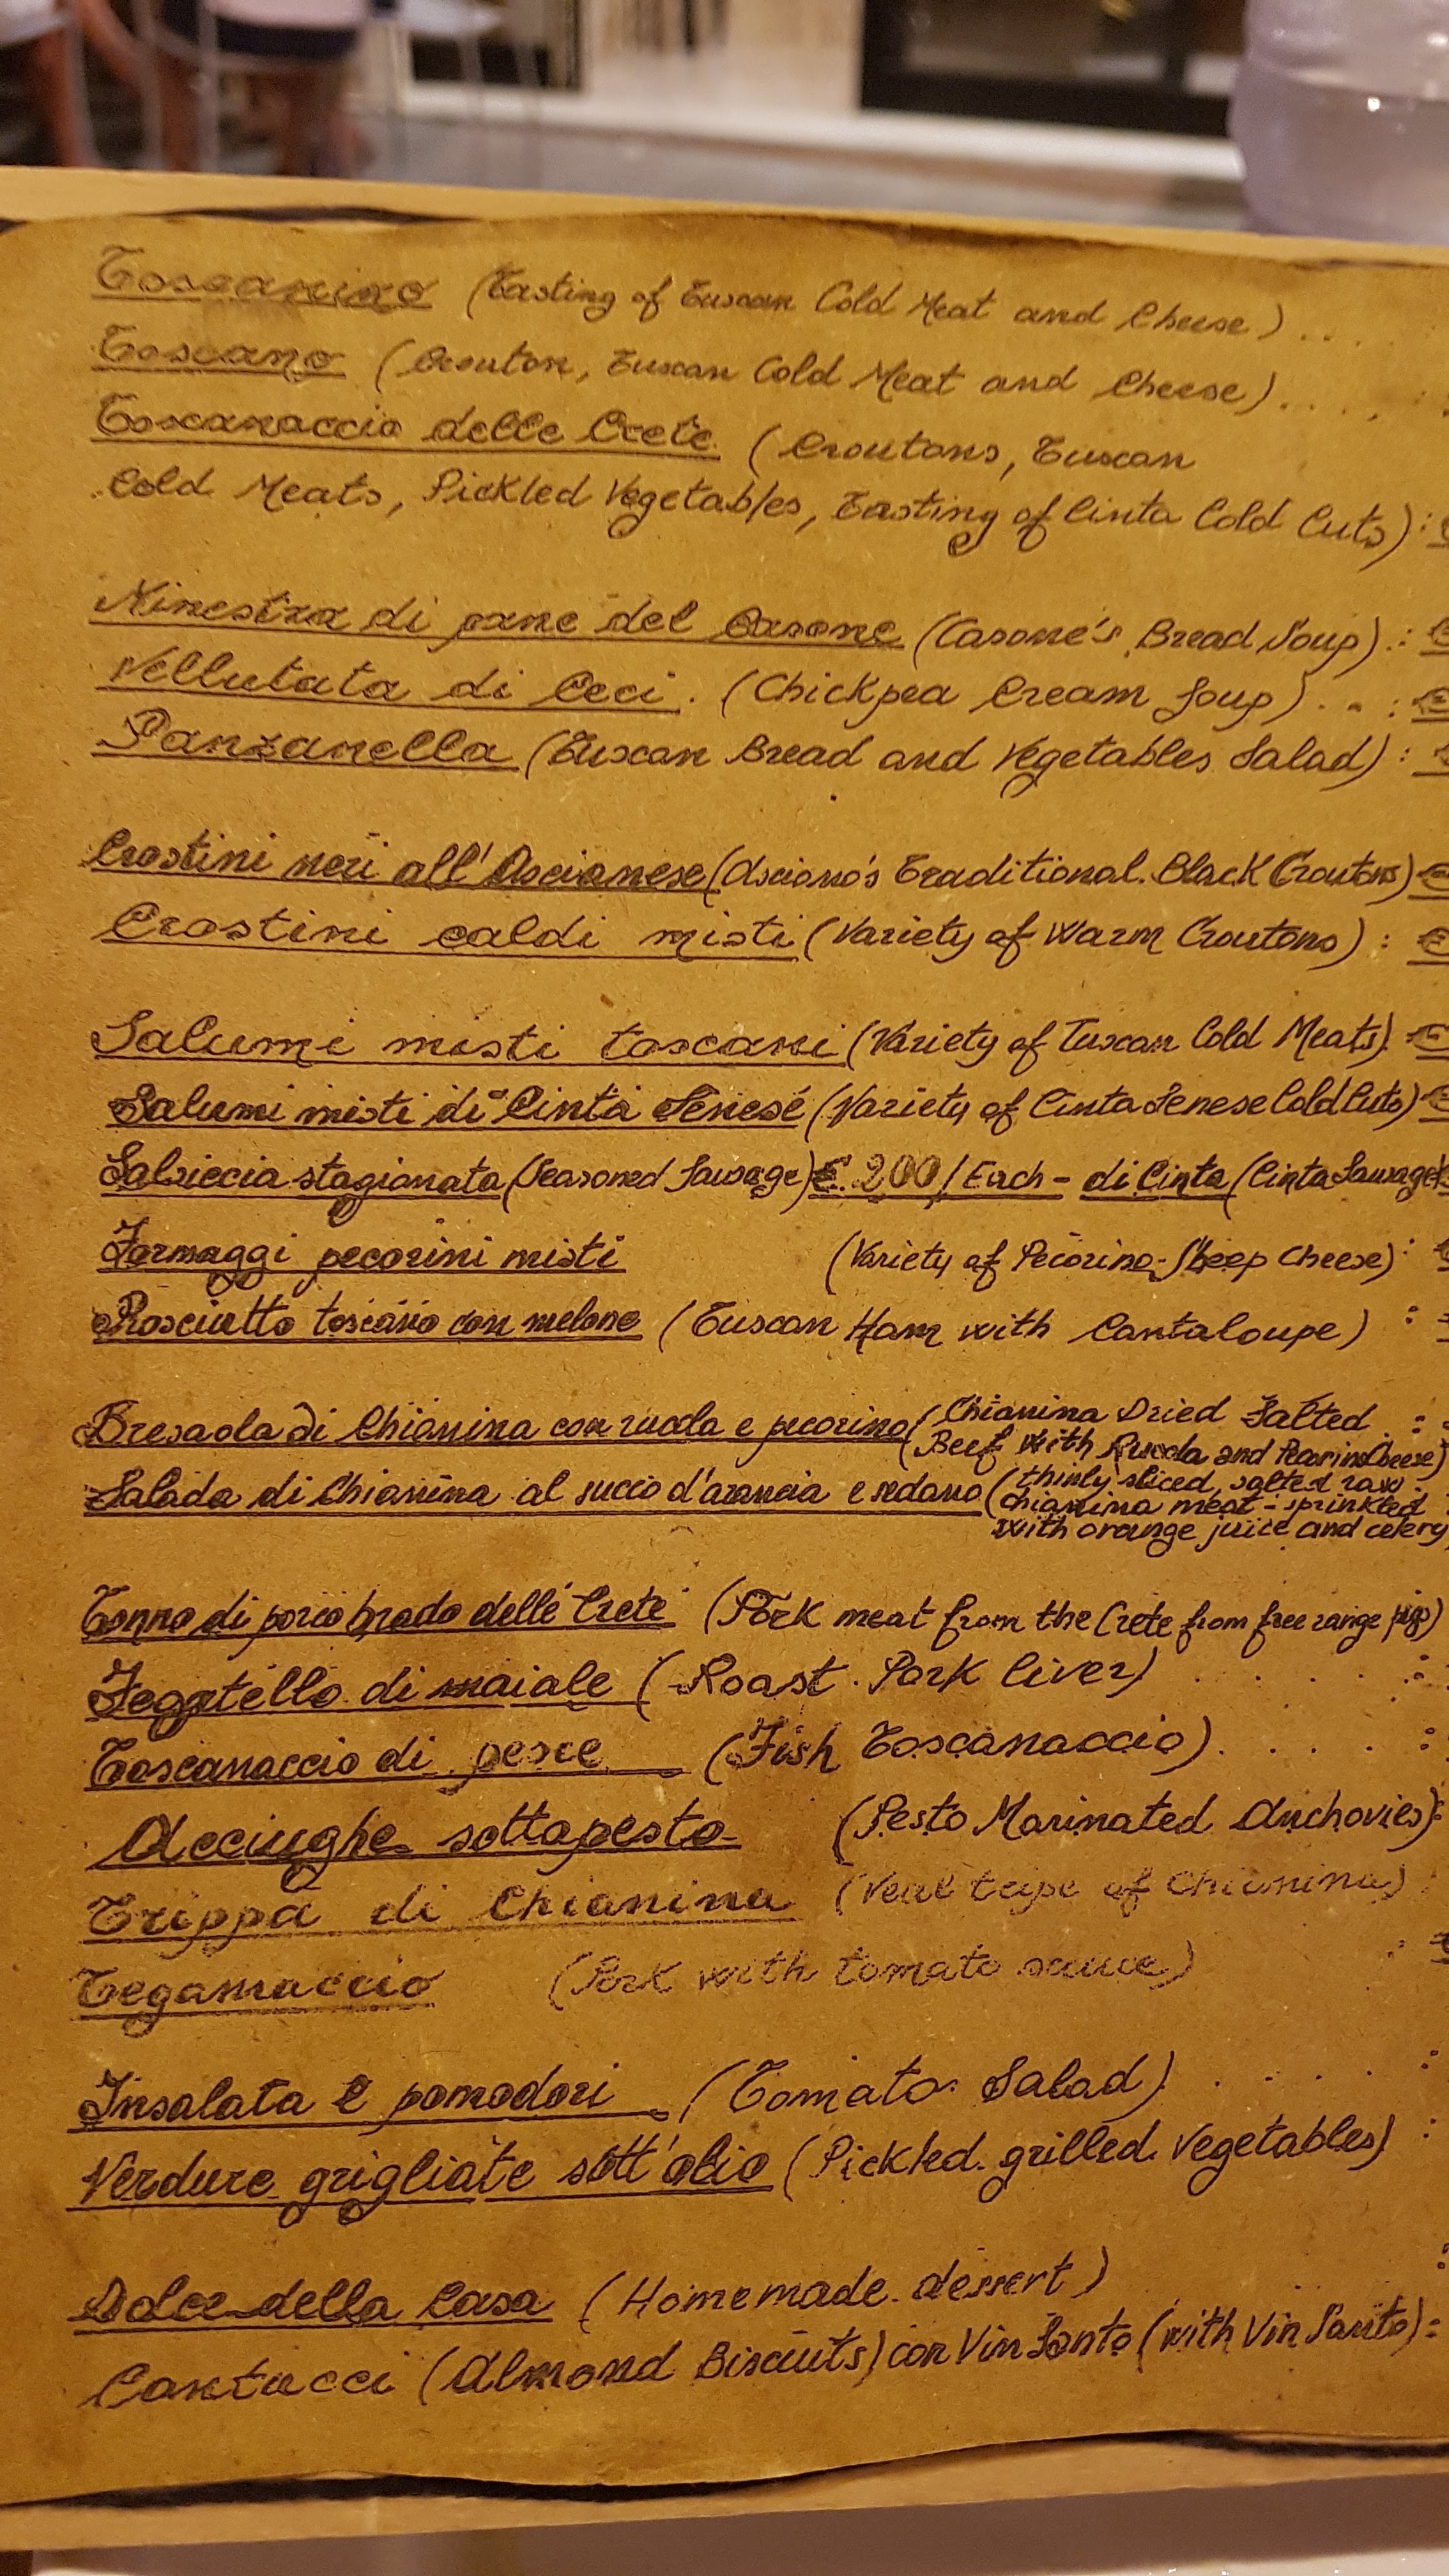 Toscanino (Tasting of Tuscan Cold Meat and Cheese) ....
Toscano (Crouton, Tuscan Cold Meat and Cheese) ....
Toscanaccio delle Crete (Croutons, Tuscan
Cold Meats, Pickled Vegetables, Tasting of Cinta Cold Cuts) :
Minestra di pane del Casone (Casone's Bread Soup) . : €
Vellutata di Ceci . (Chickpea Cream Soup) . . : €
Panzanella (Tuscan Bread and Vegetables Salad) :
Crostini neri all'Ascianese (Asciano's Traditional Black Croutons) €
Crostini caldi misti (Variety of Warm Croutons) : €
Salumi misti toscani (Variety of Tuscan Cold Meats) €
Salumi misti di Cinta Senese (Variety of Cinta Senese Cold Cuts) €
Salsiccia stagionata (Seasoned Sausage) €. 200 / Each - di Cinta (Cinta Sausage)
Formaggi pecorini misti (Variety of Pecorino-Sheep Cheese) : €
Prosciutto toscano con melone (Tuscan Ham with Cantaloupe) :
Bresaola di Chianina con rucola e pecorino (Chianina Dried Salted :
Beef with Rucola and Pecorino Cheese)
Salada di Chianina al succo d'arancia e sedano (thinly sliced, salted raw
chianina meat - sprinkled
with orange juice and celery
Tonno di porco brado delle Crete (Pork meat from the Crete from free range pigs)
Fegatello di maiale (Roast Pork liver) . . . . :
Toscanaccio di pesce (Fish Toscanaccio) . . . . :
Acciughe sottopesto (Pesto Marinated Anchovies) :
Trippa di Chianina (Veal tripe of Chianina) :
Tegamaccio (Pork with tomato sauce) :
Insalata e pomodori (Tomato Salad) . . . . :
Verdure grigliate sott'olio (Pickled grilled Vegetables) :
Dolce della Casa (Homemade dessert) :
Cantucci (Almond Biscuits) con Vin Santo (with Vin Santo) :